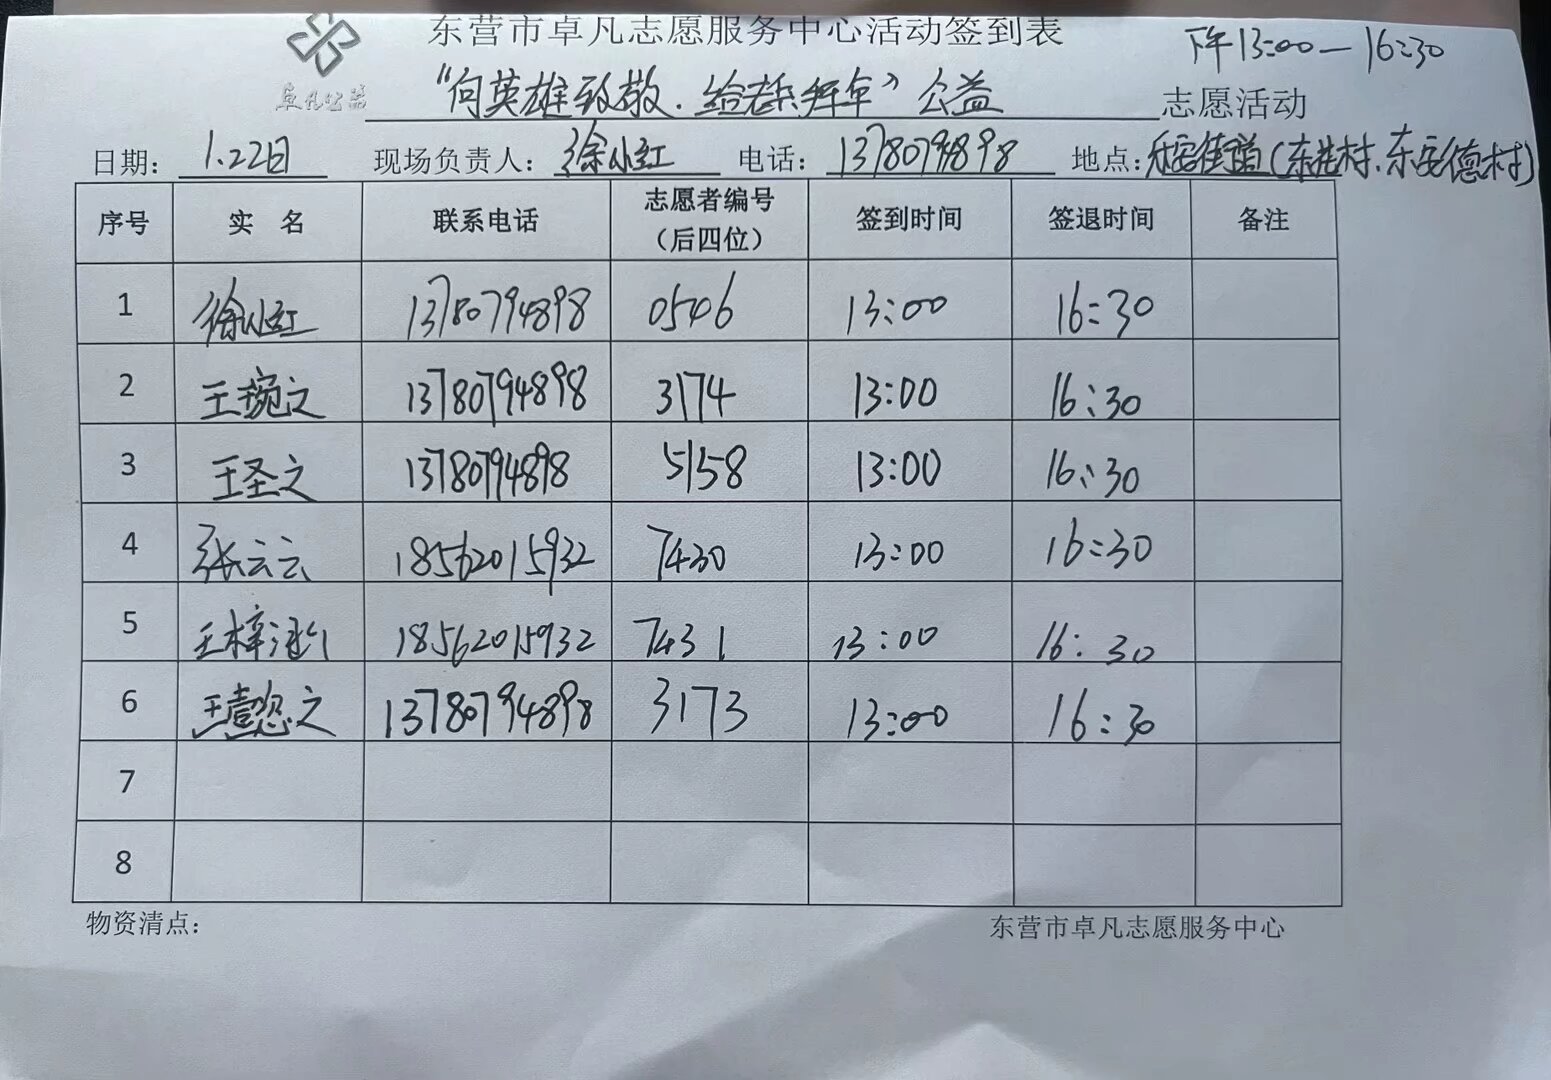 东营市卓凡志愿服务中心活动签到表
下午13:00—16:30
卓凡公益
“向英雄致敬.给老兵拜年”公益 志愿活动
日期: 1.22日 现场负责人: 徐小红 电话: 13780794898 地点: 街道(东 村、东安德村)
序号 实 名 联系电话 志愿者编号(后四位) 签到时间 签退时间 备注
1 徐小红 13780794898 0506 13:00 16:30
2 王琬之 13780794898 3174 13:00 16:30
3 王圣之 13780794898 5158 13:00 16:30
4 张云云 18562015932 7430 13:00 16:30
5 王梓 18562015932 7431 13:00 16:30
6 王懿之 13780794898 3173 13:00 16:30
7
8
物资清点: 东营市卓凡志愿服务中心